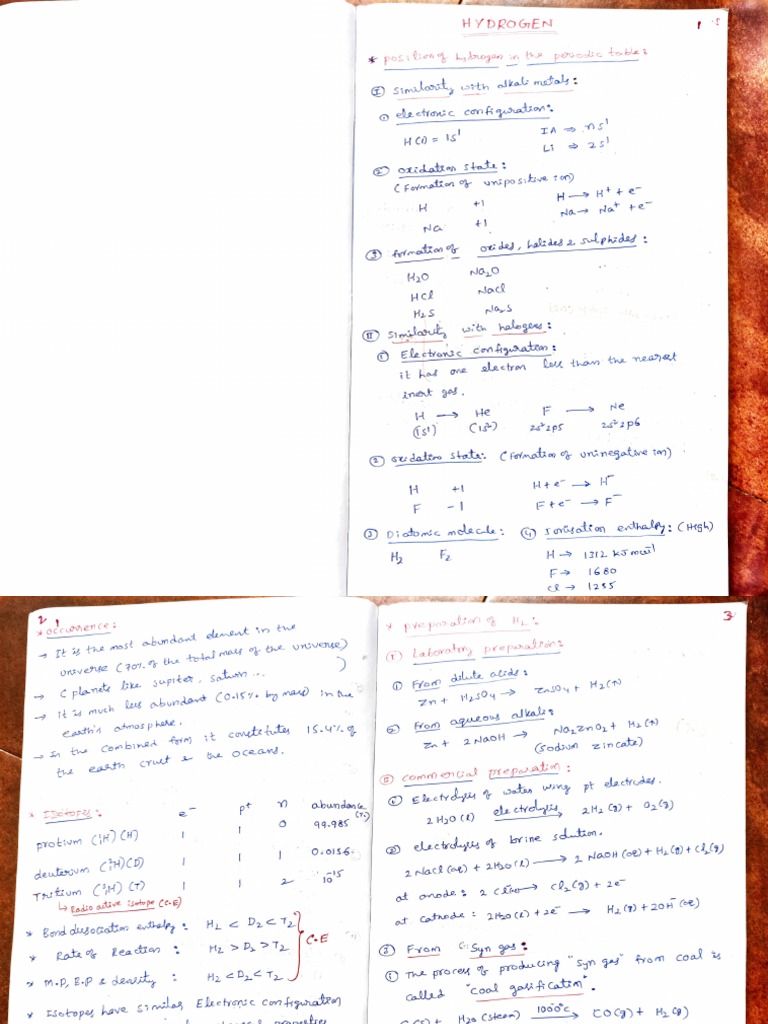 HYDROGEN
1
* position of hydrogen in the periodic table:
I similarity with alkali metals:
① electronic configuration:
H(1) = 1s¹ IA ⇒ ns¹
Li ⇒ 2s¹
② oxidation state:
(formation of unipositive ion)
H +1 H → H⁺ + e⁻
Na +1 Na → Na⁺ + e⁻
③ formation of oxides, halides & sulphides:
H₂O Na₂O
HCl NaCl
H₂S Na₂S
II Similarity with halogens:
① Electronic configuration:
it has one electron less than the nearest
inert gas.
H → He F → Ne
(1s¹) (1s²) 2s²2p5 2s²2p6
② oxidation state: (formation of uninegative ion)
H +1 H + e⁻ → H⁻
F -1 F + e⁻ → F⁻
③ Diatomic molecule: ④ Ionisation enthalpy: (High)
H₂ F₂ H → 1312 kJ mol⁻¹
F → 1680
Cl → 1255
2
* occurrence:
→ It is the most abundant element in the
universe (70% of the total mass of the universe)
→ ( planets like jupiter, saturn... )
→ It is much less abundant (0.15% by mass) in the
earth's atmosphere.
→ In the combined form it constitutes 15.4% of
the earth crust & the oceans.
* Isotopes: e⁻ p⁺ n abundance (%)
protium (¹₁H) (H) 1 1 0 99.985
deuterium (²₁H) (D) 1 1 1 0.0156
Tritium (³₁H) (T) 1 1 2 10⁻¹⁵
↳ Radio active isotope (C.E)
* Bond dissociation enthalpy: H₂ < D₂ < T₂
* Rate of Reaction: H₂ > D₂ > T₂ C.E
* M.P, B.P & density: H₂ < D₂ < T₂
* Isotopes have similar Electronic configuration
properties
3
* preparation of H₂:
I Laboratory preparation:
① From dilute acids:
Zn + H₂SO₄ → ZnSO₄ + H₂(↑)
② From aqueous alkali:
Zn + 2NaOH → Na₂ZnO₂ + H₂(↑)
(sodium zincate)
II commercial preparation:
① Electrolysis of water using pt electrodes.
2H₂O(l) electrolysis → 2H₂(g) + O₂(g)
② electrolysis of brine solution.
2NaCl(aq) + 2H₂O(l) → 2NaOH(aq) + H₂(g) + Cl₂(g)
at anode: → Cl₂(g) + 2e⁻
at cathode: 2H₂O(l) + 2e⁻ → H₂(g) + 2OH⁻(aq)
③ From Syn gas:
① The process of producing "syn gas" from coal is
called "coal gasification".
C(s) + H₂O(steam) 1000°C → CO(g) + H₂(g)